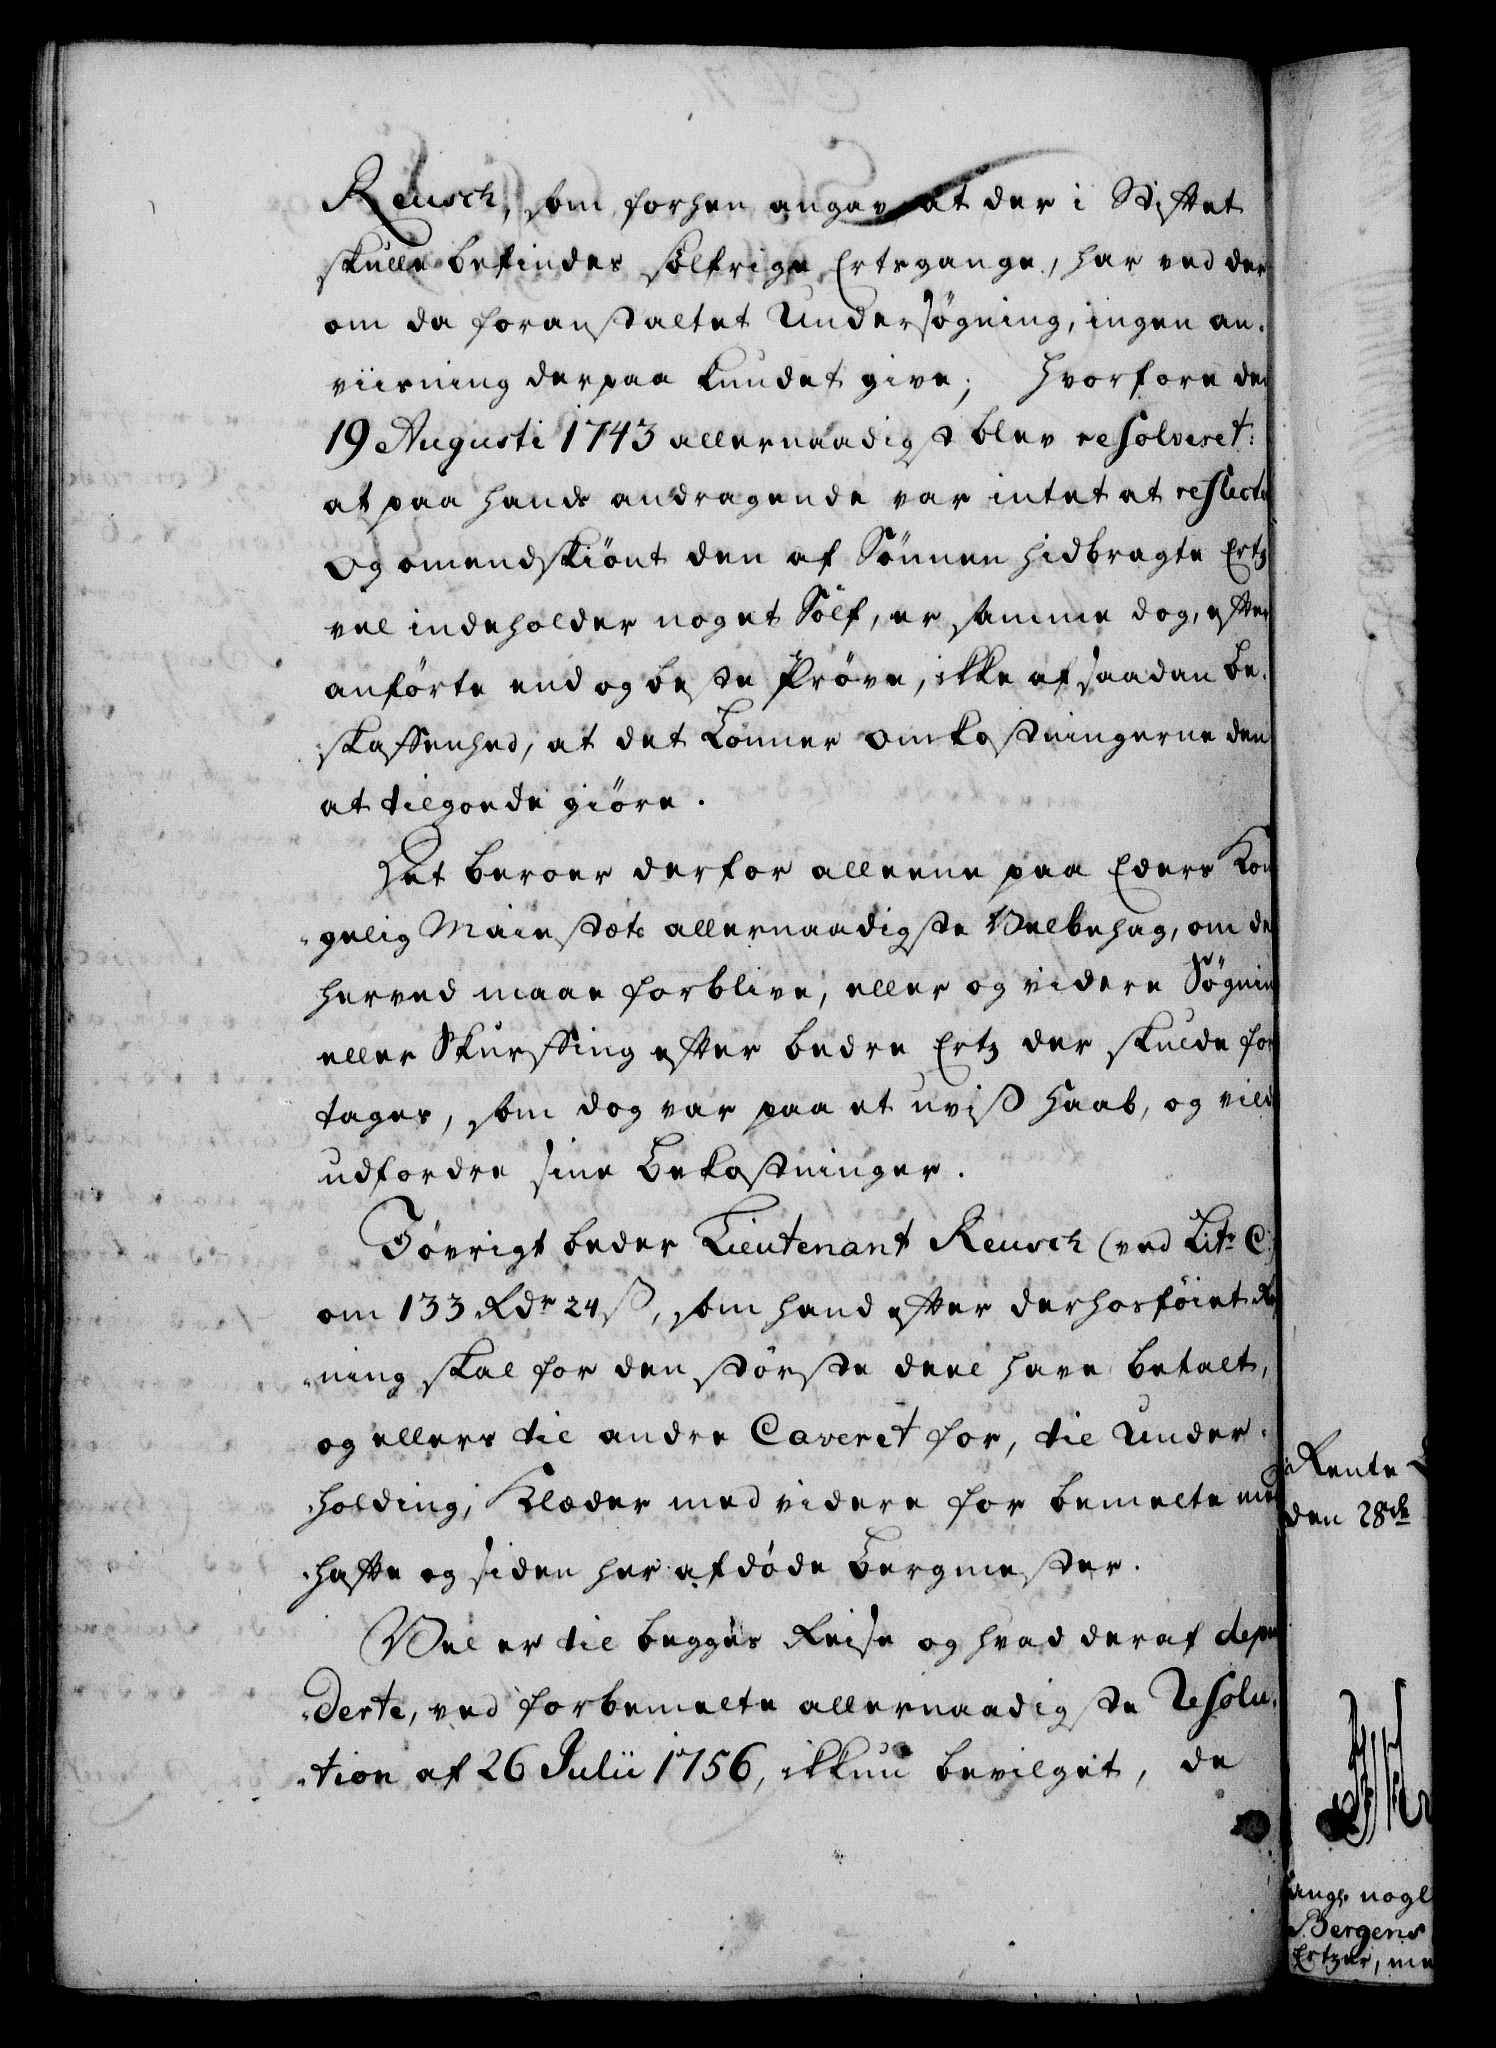 Reusch, som forhen angav at der i Stiftet
skulle befindes sølfrige Ertzgange, har ved der
om da foranstaltet Undersøgning, ingen an-
viisning derpaa kundet give; Hvorfore den
19 Augusti 1743 allernaadigst blev resolveret:
at paa hands andragende var intet at reflecte
Og omendskiönt den af Sönnen hidbragte Ertz
vel indeholder noget Sölf, er samme dog, efter
anförte end og beste Pröve, ikke af saadan Be-
skaffenhed, at det Lönner Omkostningerne den
at tilgoede giöre.
Det beroer derfor alleene paa Eders Kon
gelig Maiestæts allernaadigste Velbehag, om de
herved maae forblive, eller og videre Sögnin
eller Skurffing efter bedre Ertz der skulde for
tages, som dog var paa et uvist Haab, og vild
udfordre sine Bekostninger.
Iøvrigt beder Lieutenant Reusch (ved Litr C:)
om 133 Rdr 24 ß, som hand efter derhosföiet Re
ning skal for den störste deel have betalt,
og ellers til andre Caveret for, til Under-
holding, Klæder med videre for bemelte
hafte og siden her afdöde Bergmester.
Vel er til begges Reise og hvad deraf depen
derte, ved forbemelte allernaadigste Resolu-
tion af 26 Julii 1756, ikkun bevilget, de
Rente
den 28de
nogl
Bergens
Ertzer, me